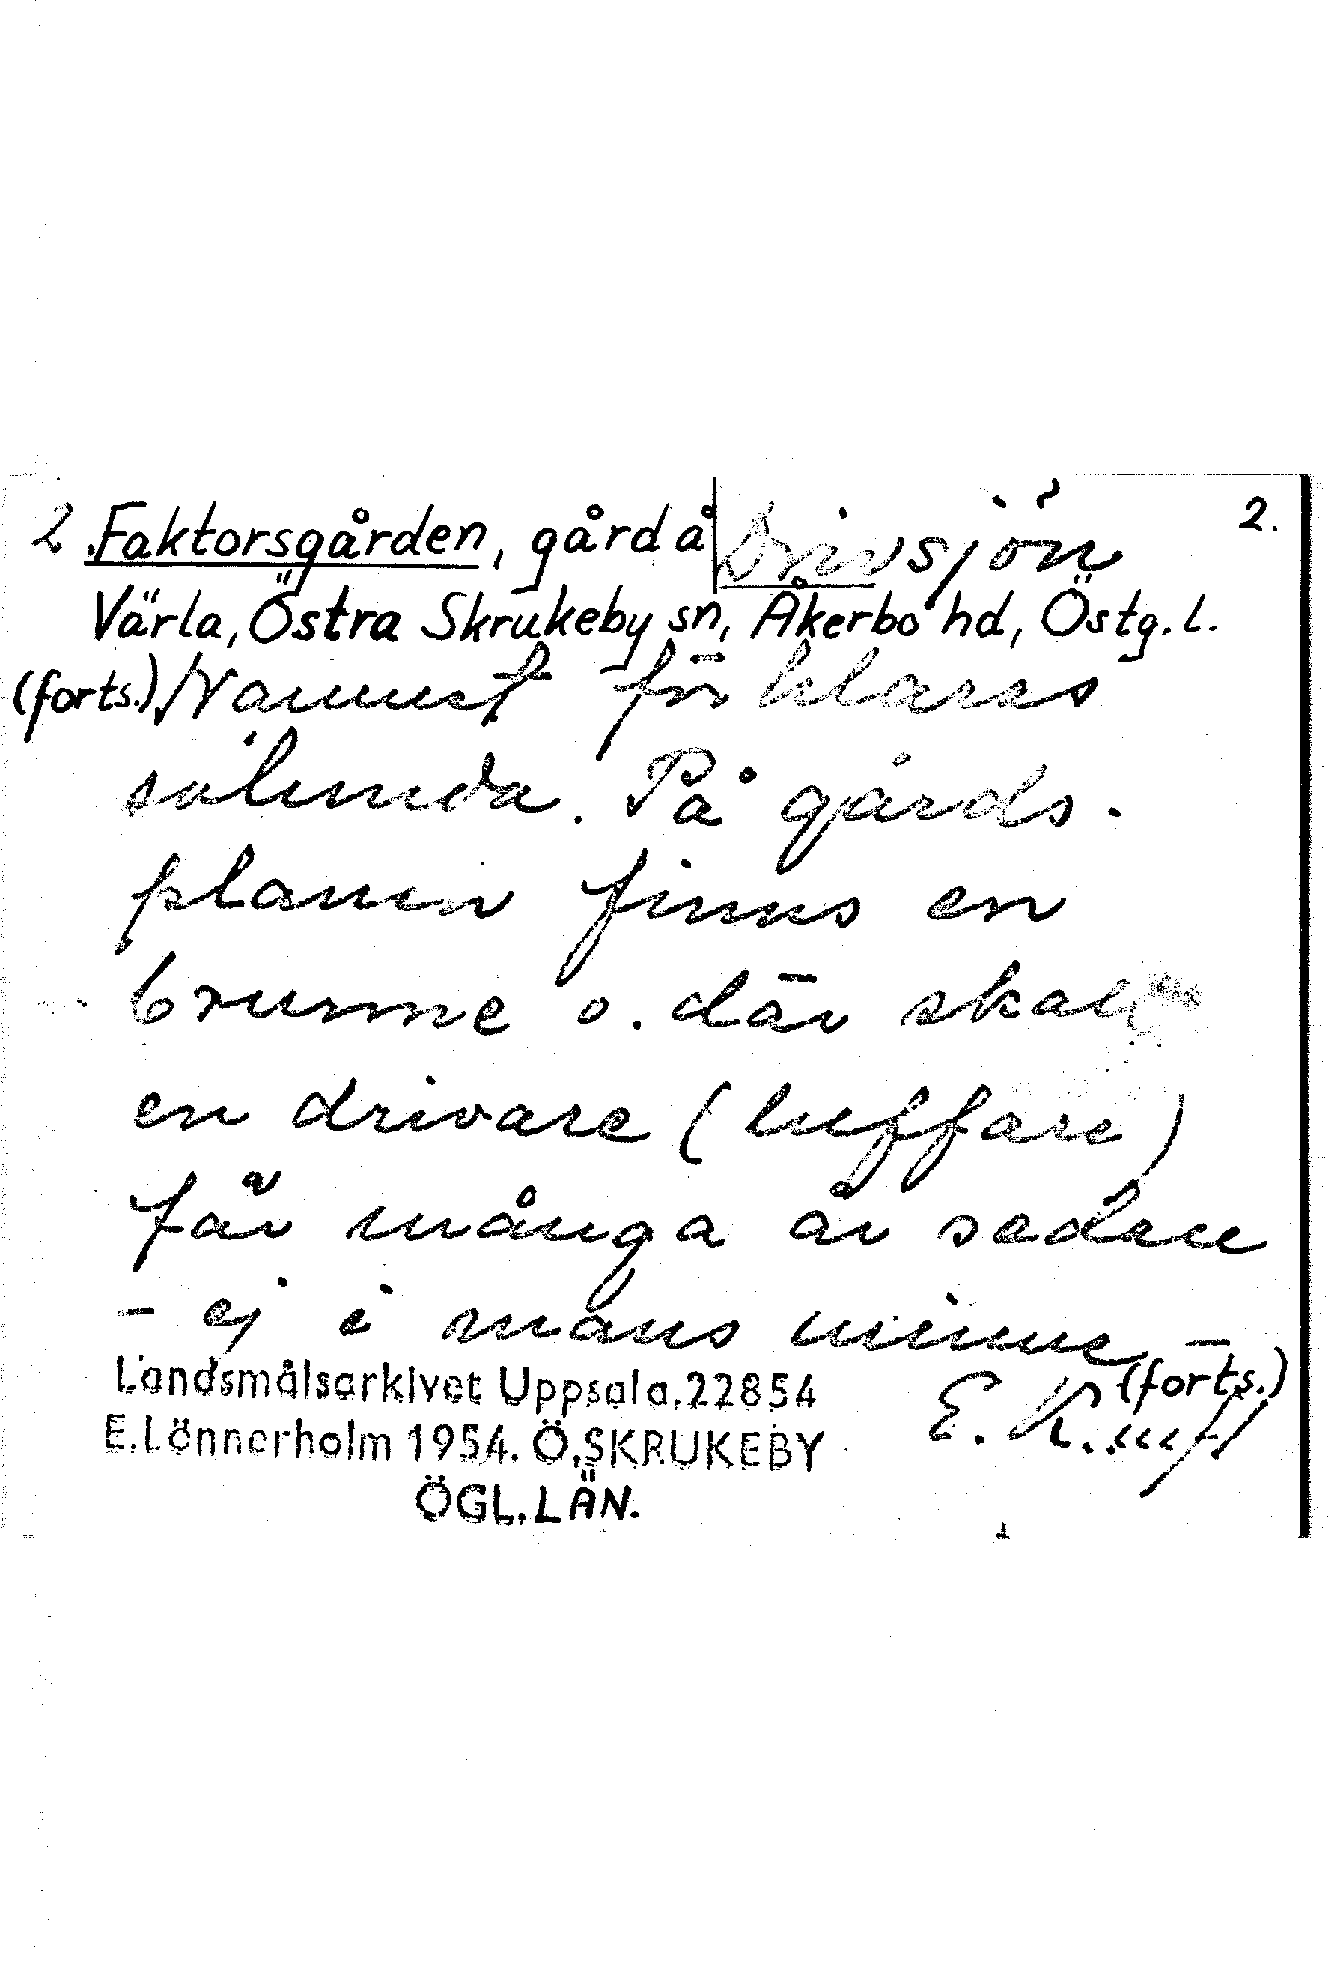 2 Faktorsgården, gård å Drivsjön 2.
Värla, Östra Skrukeby sn, Åkerbo hd, Östg. l.
(forts.) Namnet förklaras
sålunda. På gårds-
planen finns en
brunne o. där skall
en drivare (luffare)
för många år sedan
- ej i mans minne -
(forts.)
Landsmålsarkivet Uppsala. 22854
E. Lönnerholm 1954. Ö. SKRUKEBY
ÖGL. LÄN.
E. K.